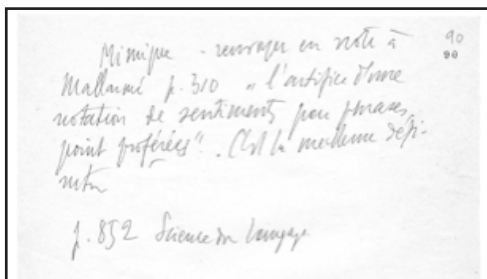 90
90
Mimique - renvoyer en note à
Mallarmé p. 310 "l'artifice d'une
notation de sentiments par phrases
point proférées". C'est la meilleure défi-
nition
p. 852 Science du langage